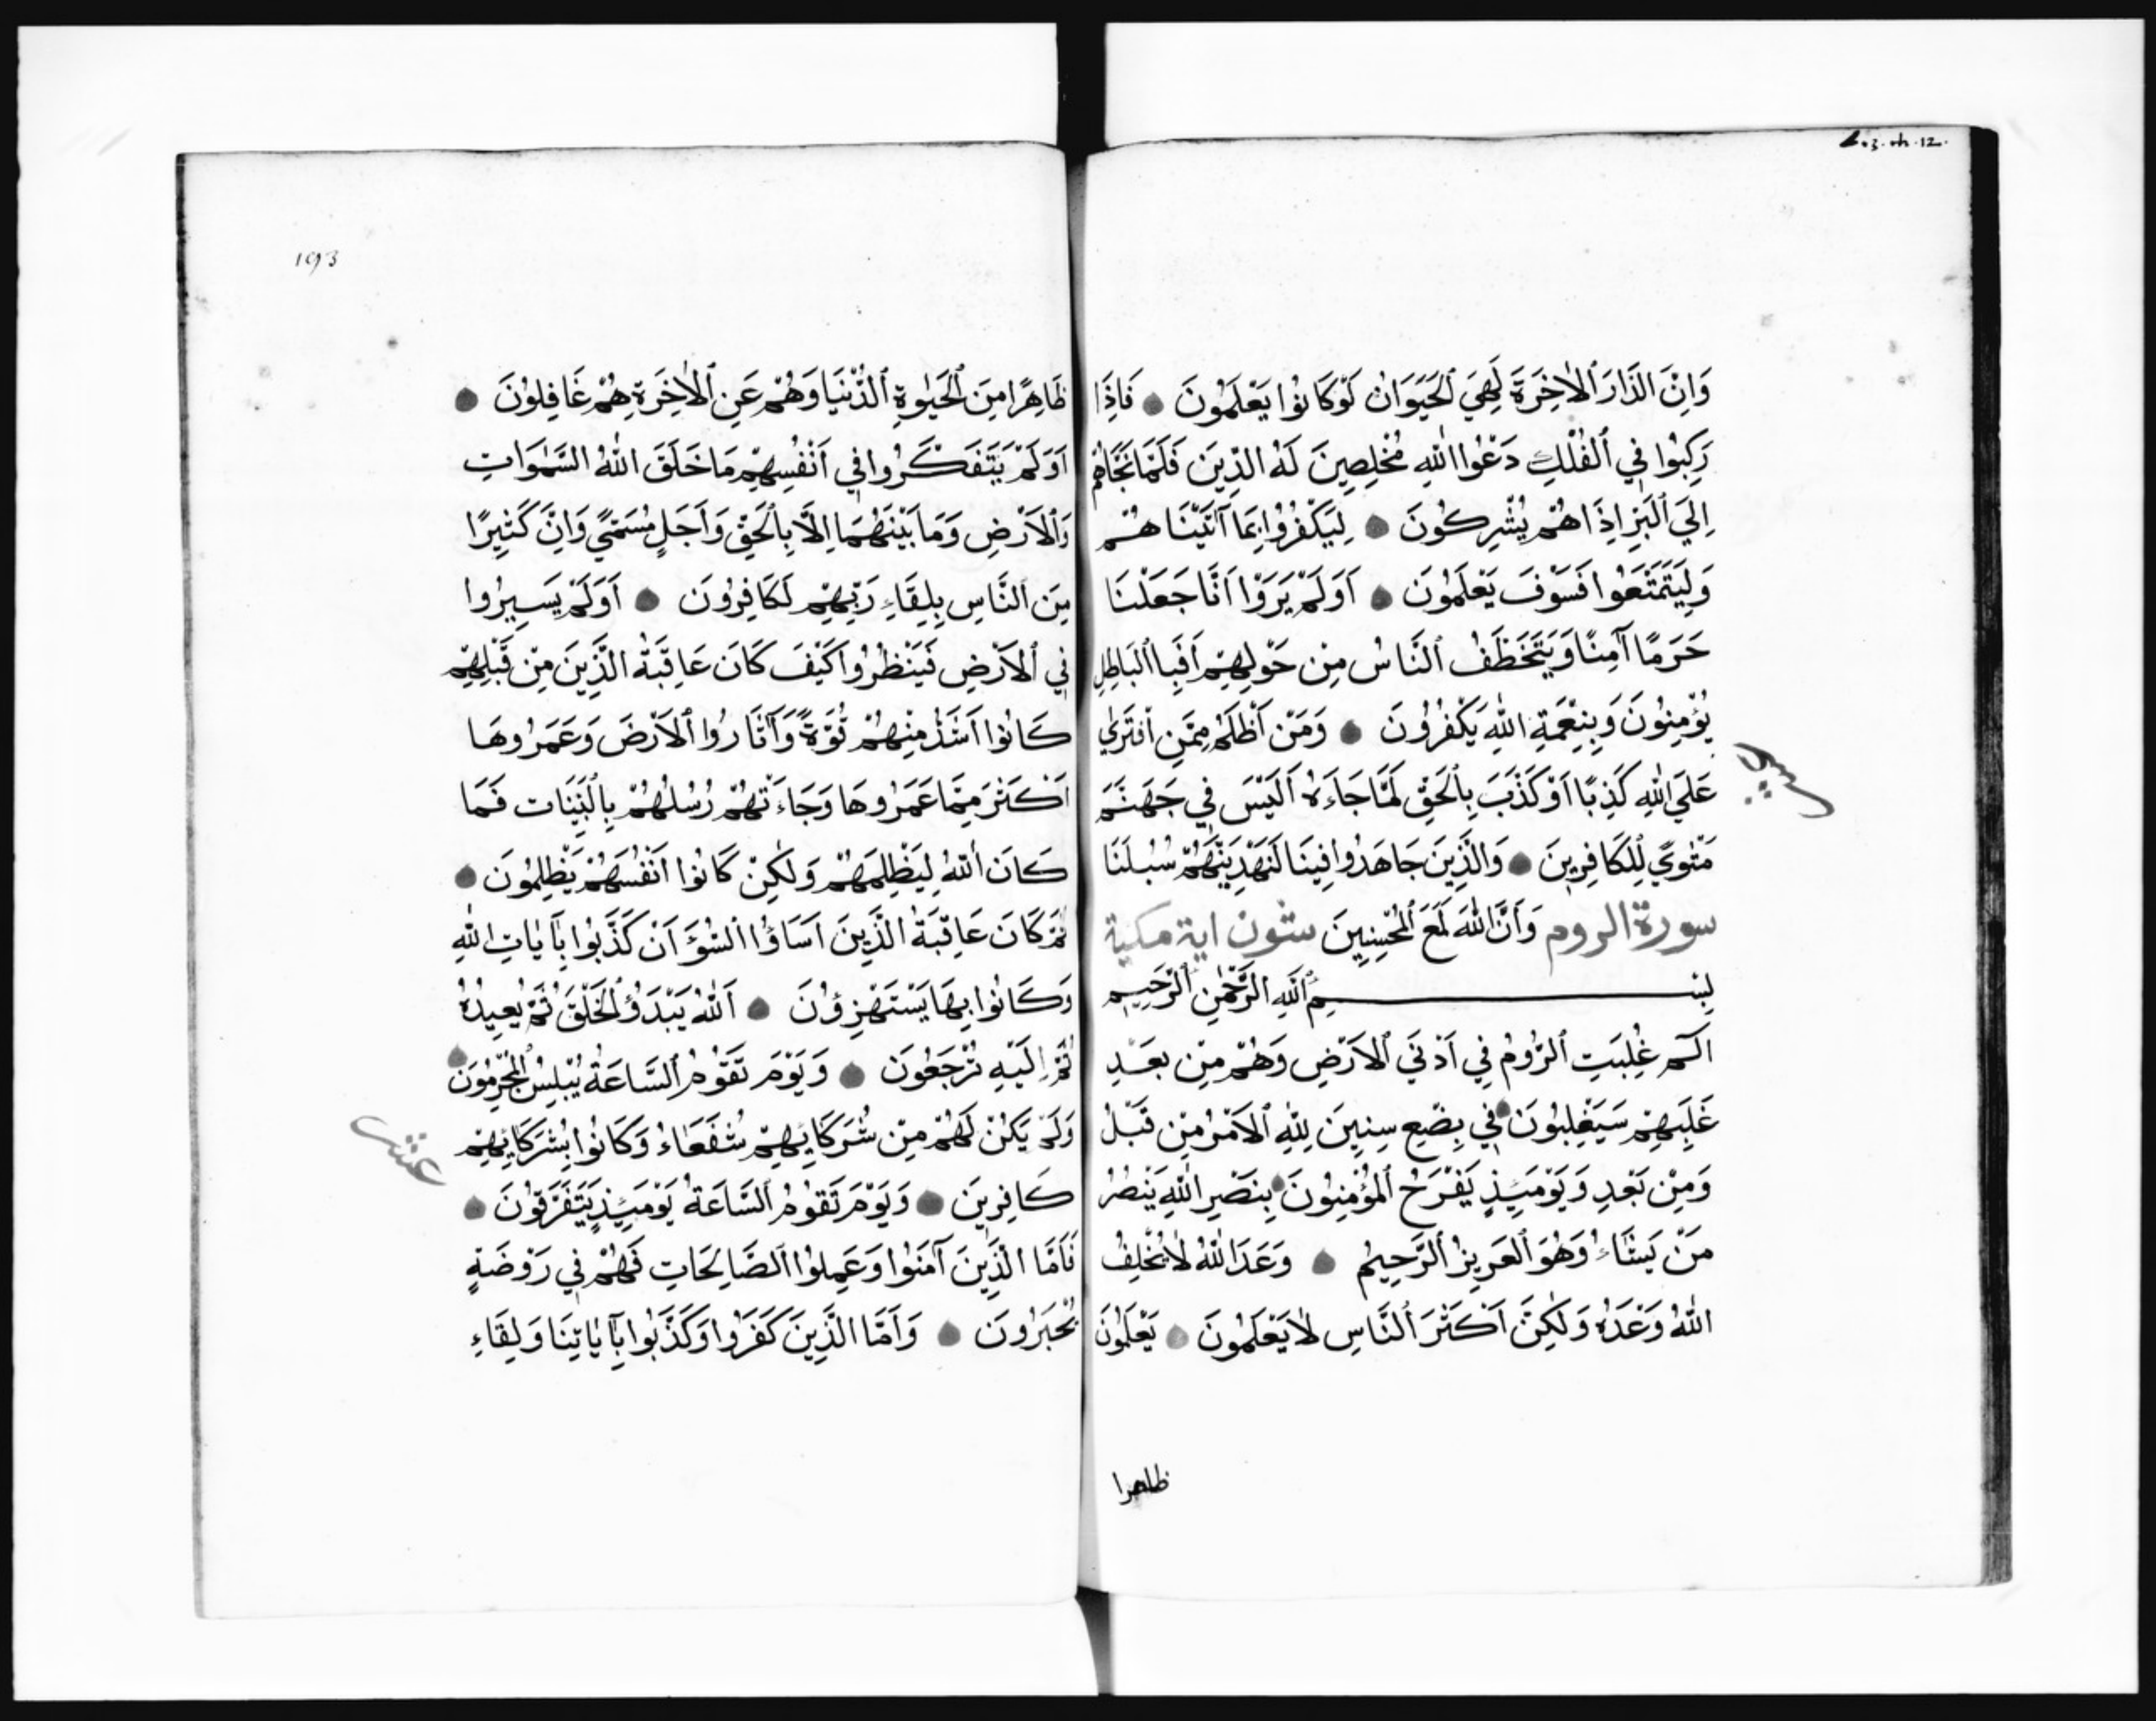 603.ch.12.
وَاِنَّ الدَّارَ ٱلْاٰخِرَةَ لَهِيَ ٱلْحَيَوَانُ لَوْ كَانُوا يَعْلَمُونَ فَاِذَا
رَكِبُوا فِي ٱلْفُلْكِ دَعَوُا اللّٰهَ مُخْلِصِينَ لَهُ الدِّينَ فَلَمَّا نَجَّاهُمْ
اِلَي ٱلْبَرِّ اِذَا هُمْ يُشْرِكُونَ لِيَكْفُرُوا بِمَا آتَيْنَاهُمْ
وَلِيَتَمَتَّعُوا فَسَوْفَ يَعْلَمُونَ اَوَلَمْ يَرَوْا اَنَّا جَعَلْنَا
حَرَمًا آمِنًا وَيُتَخَطَّفُ ٱلنَّاسُ مِن حَوْلِهِمْ اَفَبِاالْبَاطِلِ
يُؤْمِنُونَ وَبِنِعْمَةِ اللّٰهِ يَكْفُرُونَ وَمَنْ اَظْلَمُ مِمَّنِ افْتَرٰي
عَلَي اللّٰهِ كَذِبًا اَوْ كَذَّبَ بِٱلْحَقِّ لَمَّا جَاءَهُ اَلَيْسَ فِي جَهَنَّمَ
مَثْوًي لِلْكَافِرِينَ وَالَّذِينَ جَاهَدُوا فِينَا لَنَهْدِيَنَّهُمْ سُبُلَنَا
سورة الروم وَاَنَّ اللّٰهَ لَمَعَ ٱلْمُحْسِنِينَ ستون اية مكية
بِسْمِ ٱللّٰهِ الرَّحْمٰنِ ٱلرَّحِيمِ
الٓمٓ غُلِبَتِ ٱلرُّومُ فِي اَدْنَي ٱلْاَرْضِ وَهُمْ مِنْ بَعْدِ
غَلَبِهِمْ سَيَغْلِبُونَ فِي بِضْعِ سِنِينَ لِلّٰهِ ٱلْاَمْرُ مِنْ قَبْلُ
وَمِنْ بَعْدِ وَيَوْمَئِذٍ يَفْرَحُ ٱلْمُؤْمِنُونَ بِنَصْرِ اللّٰهِ يَنْصُرُ
مَنْ يَشَاءُ وَهُوَ ٱلْعَزِيزُ ٱلرَّحِيمُ وَعَدَ اللّٰهُ لَا يُخْلِفُ
اللّٰهُ وَعْدَهُ وَلٰكِنَّ اَكْثَرَ ٱلنَّاسِ لَا يَعْلَمُونَ يَعْلَمُونَ
ظاهرا
193
ظَاهِرًا مِنَ ٱلْحَيٰوةِ ٱلدُّنْيَا وَهُمْ عَنِ ٱلْاٰخِرَةِ هُمْ غَافِلُونَ
اَوَلَمْ يَتَفَكَّرُوا فِي اَنْفُسِهِمْ مَا خَلَقَ اللّٰهُ السَّمٰوَاتِ
وَٱلْاَرْضِ وَمَا بَيْنَهُمَا اِلَّا بِٱلْحَقِّ وَاَجَلٍ مُسَمًّي وَاِنَّ كَثِيرًا
مِنَ ٱلنَّاسِ بِلِقَاءِ رَبِّهِمْ لَكَافِرُونَ اَوَلَمْ يَسِيرُوا
فِي ٱلْاَرْضِ فَيَنْظُرُوا كَيْفَ كَانَ عَاقِبَةُ الَّذِينَ مِنْ قَبْلِهِمْ
كَانُوا اَشَدَّ مِنْهُمْ قُوَّةً وَآثَارُوا ٱلْاَرْضَ وَعَمَرُوهَا
اَكْثَرَ مِمَّا عَمَرُوهَا وَجَاءَتْهُمْ رُسُلُهُمْ بِالْبَيِّنَات فَمَا
كَانَ ٱللّٰهُ لِيَظْلِمَهُمْ وَلٰكِنْ كَانُوا اَنْفُسَهُمْ يَظْلِمُونَ
ثُمَّ كَانَ عَاقِبَةُ الَّذِينَ اَسَاؤُا السُّؤَ اَنْ كَذَّبُوا بِآيَاتِ اللّٰهِ
وَكَانُوا بِهَا يَسْتَهْزِؤُنَ اَللّٰهُ يَبْدَؤُ ٱلْخَلْقَ ثُمَّ يُعِيدُهُ
ثُمَّ اِلَيْهِ تُرْجَعُونَ وَيَوْمَ تَقُومُ ٱلسَّاعَةُ يُبْلِسُ ٱلْمُجْرِمُونَ
وَلَمْ يَكُنْ لَهُمْ مِنْ شُرَكَائِهِمْ شُفَعَاءُ وَكَانُوا بِشُرَكَائِهِمْ
عشر
كَافِرِينَ وَيَوْمَ تَقُومُ ٱلسَّاعَةُ يَوْمَئِذٍ يَتَفَرَّقُونَ
فَاَمَّا الَّذِينَ آمَنُوا وَعَمِلُوا ٱلصَّالِحَاتِ فَهُمْ فِي رَوْضَةٍ
يُحْبَرُونَ وَاَمَّا الَّذِينَ كَفَرُوا وَكَذَّبُوا بِآيَاتِنَا وَلِقَاءِ